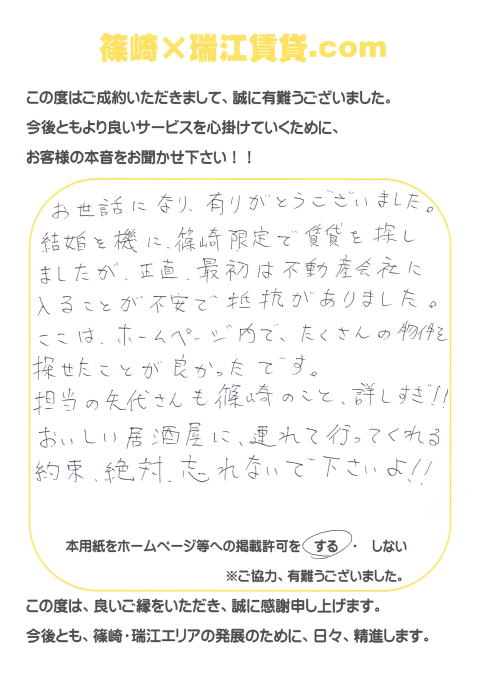 篠崎×瑞江賃貸.com
この度はご成約いただきまして、誠に有難うございました。
今後ともより良いサービスを心掛けていくために、
お客様の本音をお聞かせ下さい！！
お世話になり、有りがとうございました。
結婚を機に、篠崎限定で賃貸を探し
ましたが、正直、最初は不動産会社に
入ることが不安で抵抗がありました。
ここは、ホームページ内で、たくさんの物件を
探せたことが良かったです。
担当の矢代さんも篠崎のこと、詳しすぎ!!
おいしい居酒屋に、連れて行ってくれる
約束、絶対、忘れないで下さいよ!!
本用紙をホームページ等への掲載許可を する ・ しない
※ご協力、有難うございました。
この度は、良いご縁をいただき、誠に感謝申し上げます。
今後とも、篠崎・瑞江エリアの発展のために、日々、精進します。